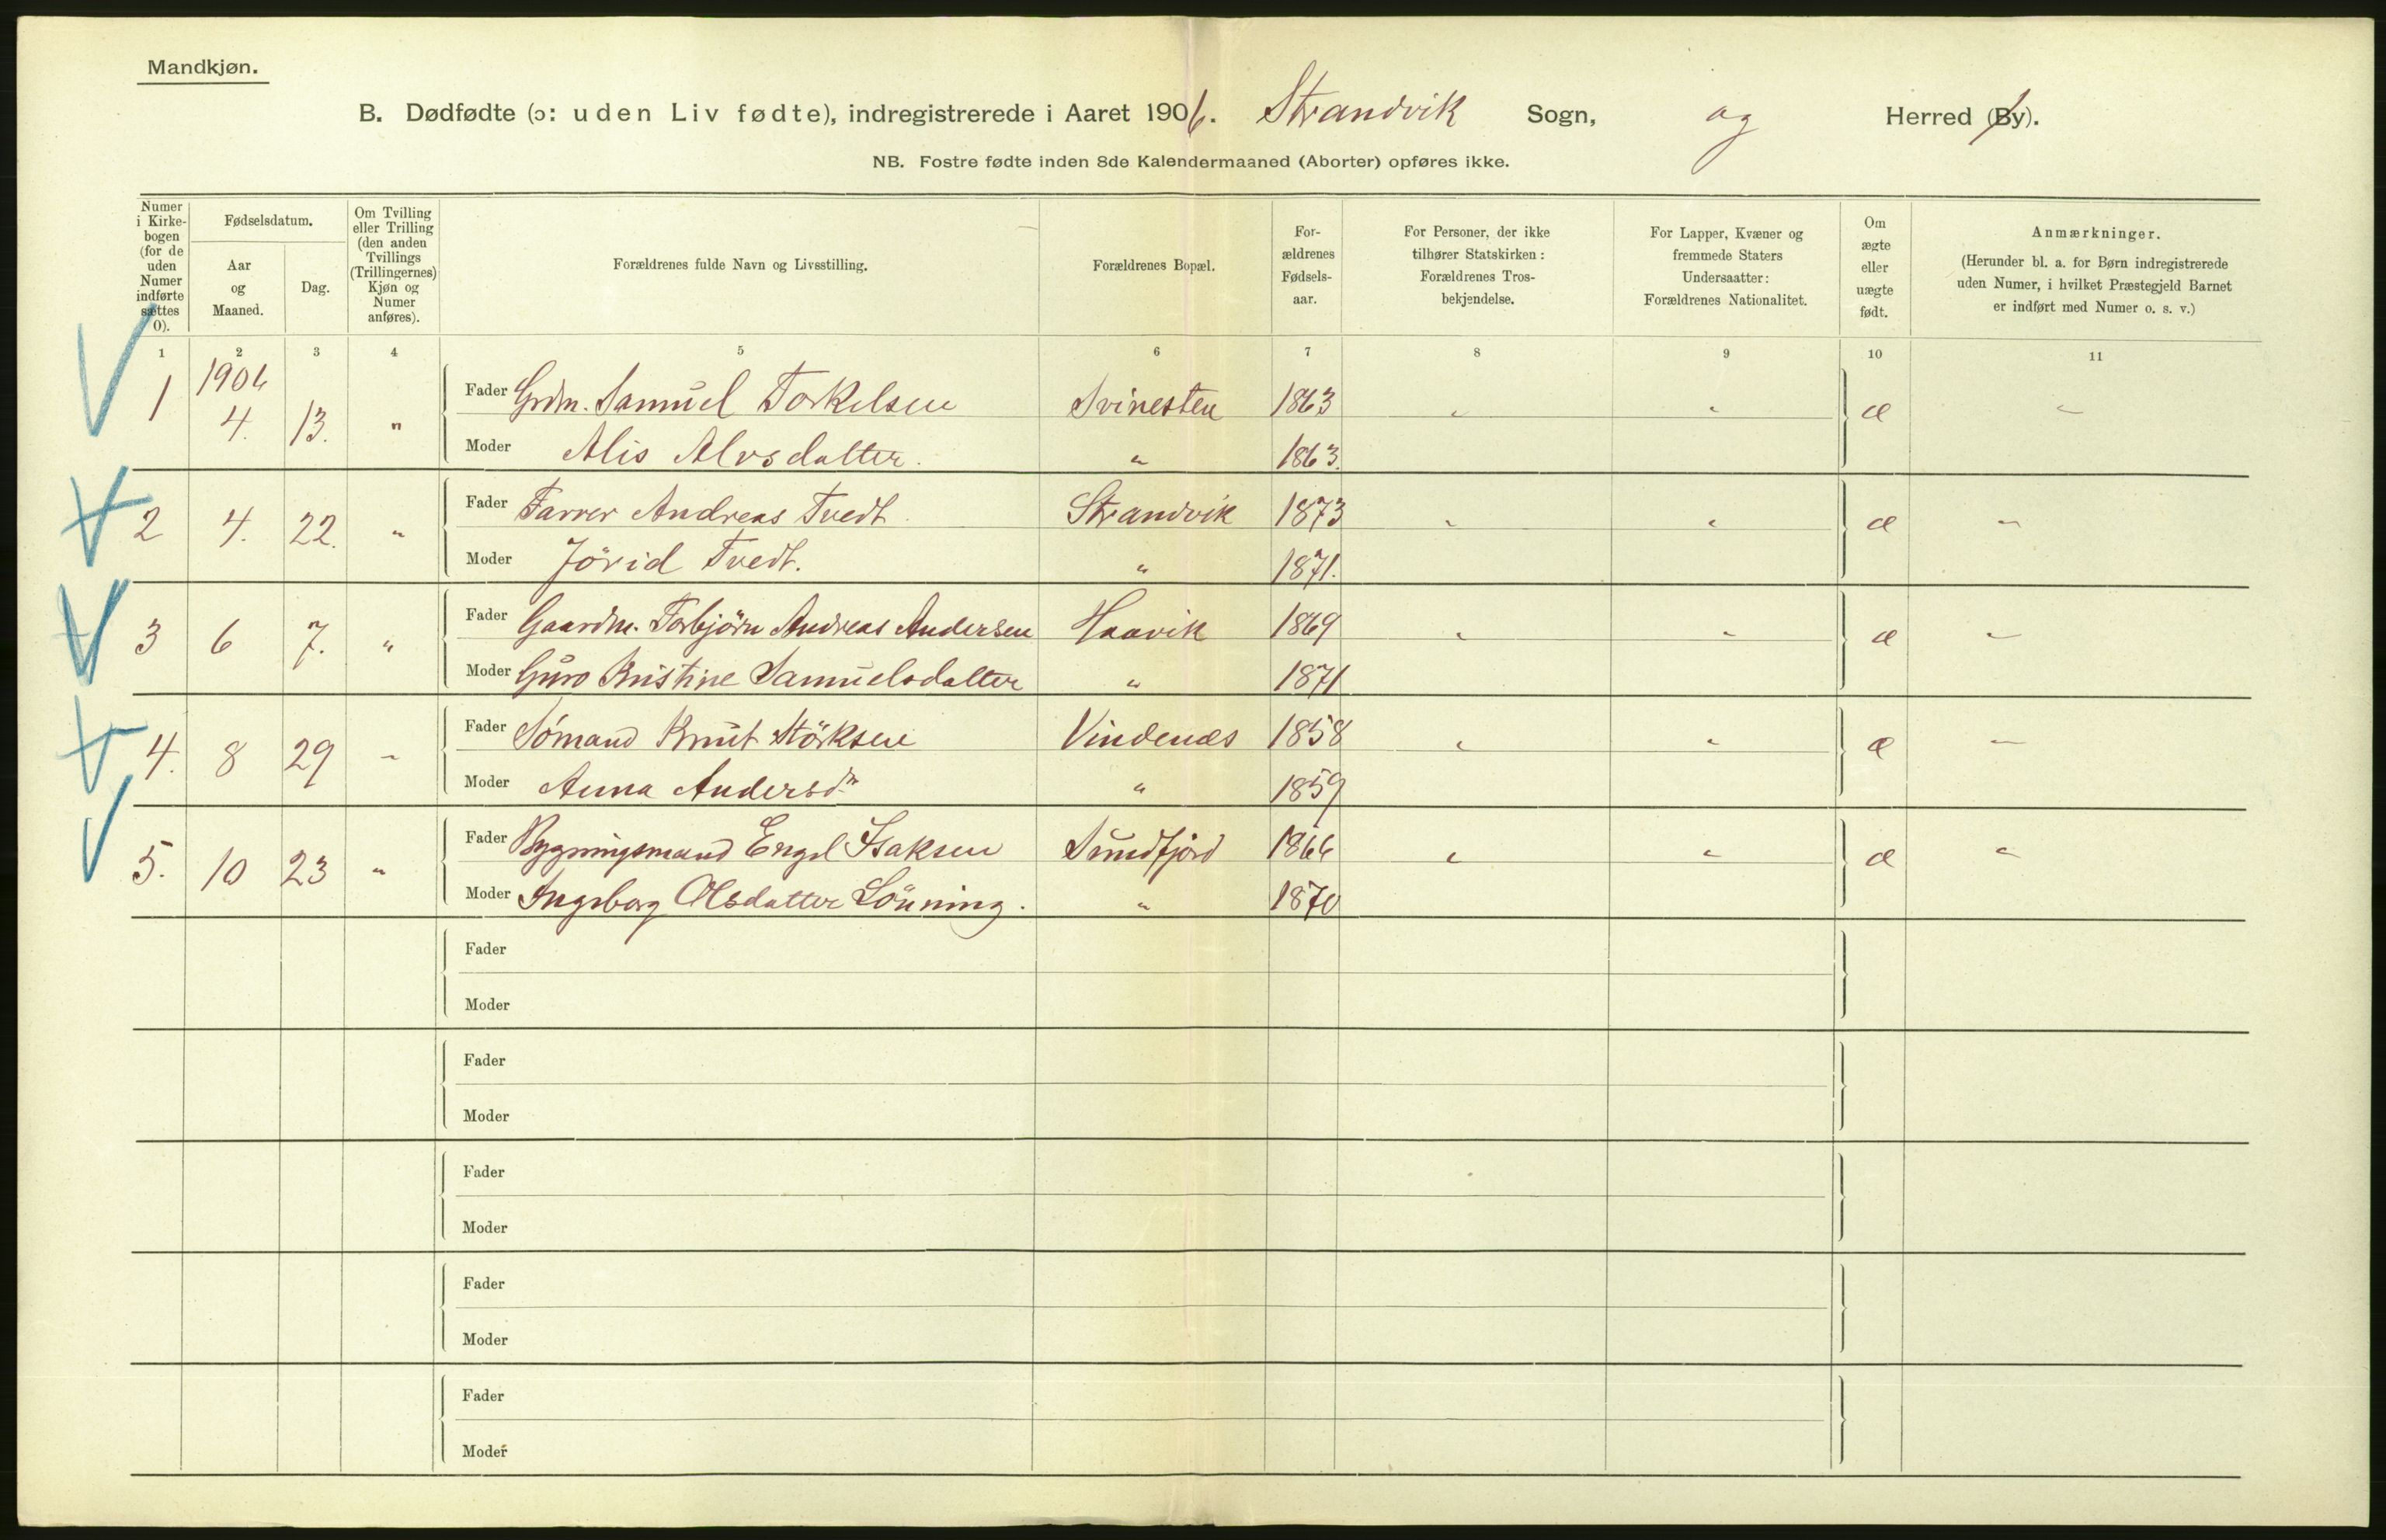 Mandkjøn.
B. Dødfødte (ɔ: uden Liv fødte), indregistrerede i Aaret 1906. Strandvik Sogn, og Herred (By).
NB. Fostre fødte inden 8de Kalendermaaned (Aborter) opføres ikke.
Numer i Kirke-bogen (for de uden Numer indførte sættes 0).
Fødselsdatum.
Aar og Maaned.
Dag.
Om Tvilling eller Trilling (den anden Tvillings (Trillingernes) Kjøn og Numer anføres).
Forældrenes fulde Navn og Livsstilling.
Forældrenes Bopæl.
For-ældrenes Fødsels-aar.
For Personer, der ikke tilhører Statskirken: Forældrenes Tros-bekjendelse.
For Lapper, Kvæner og fremmede Staters Undersaatter: Forældrenes Nationalitet.
Om ægte eller uægte født.
Anmærkninger.
(Herunder bl. a. for Børn indregistrerede uden Numer, i hvilket Præstegjeld Barnet er indført med Numer o. s. v.)
1 2 3 4 5 6 7 8 9 10 11
1906
1 4. 13. " Fader Grdm. Samuel Torkelsen Svinesten 1863 " " æ "
Moder Alis Alvsdatter. " 1863.
2 4. 22. " Fader Farver Andreas Tvedt. Strandvik 1873 " " æ "
Moder Jörid Tvedt. " 1871.
3 6 7. " Fader Gaardm. Torbjörn Andreas Andersen Haavik 1869 " " æ "
Moder Guro Kristine Samuelsdatter " 1871
4. 8 29 " Fader Sömand Knut Störksen Vindenæs 1858 " " æ "
Moder Anna Andersdtr " 1859
5. 10 23 " Fader Bygningsmand Engel Isaksen Sundfjord 1866 " " æ "
Moder Ingeborg Olsdatter Lönning. " 1870
Fader
Moder
Fader
Moder
Fader
Moder
Fader
Moder
Fader
Moder